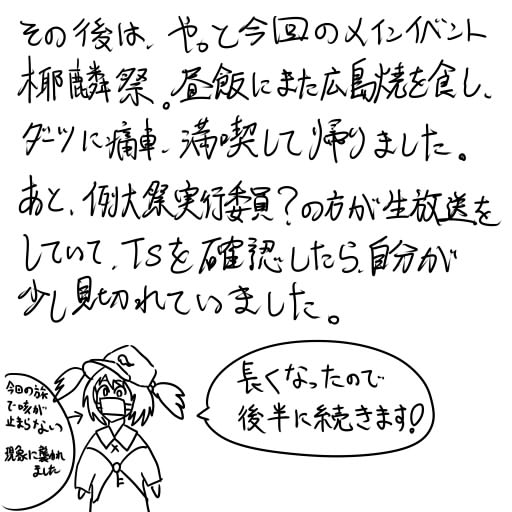 その後は、やっと今回のメインイベント
椰麟祭。昼飯にまた広島焼を食し、
ダーツに痛車、満喫して帰りました。
あと、例大祭実行委員?の方が生放送を
していて、TSを確認したら、自分が
少し見切れていました。
今回の旅
で咳が
止まらない
現象に襲われ
ました
長くなったので
後半に続きます!